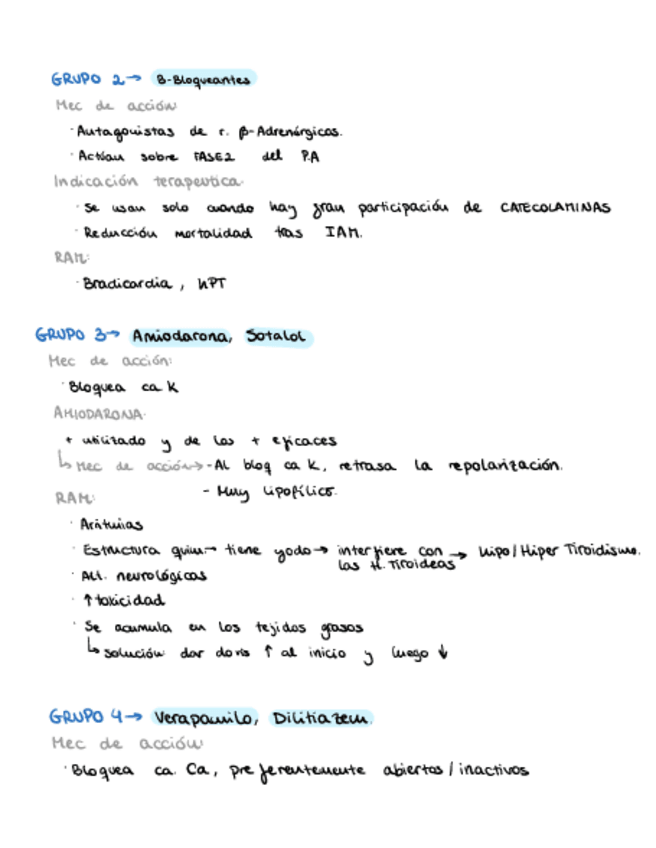 GRUPO 2→ B-Bloqueantes
Mec de acción
· Antagonistas de r. β-Adrenérgicos.
· Actúan sobre FASE2 del P.A
Indicación terapeutica
· Se usan solo cuando hay gran participación de CATECOLAMINAS
· Reducción mortalidad tras IAM.
RAM:
· Bradicardia, HPT
GRUPO 3→ Amiodarona, Sotalol
Mec de acción:
· Bloquea ca K
AMIODARONA·
+ utilizado y de los + eficaces
↳ Mec de acción→ - Al bloq ca K, retrasa la repolarización.
- Muy lipofílico.
RAM:
· Arritmias
· Estructura quim→ tiene yodo→ interfiere con las H. Tiroideas → Hipo/Hiper Tiroidismo.
· Alt. neurológicas
· ↑ toxicidad
· Se acumula en los tejidos grasos
↳ solución dar dosis ↑ al inicio y luego ↓
GRUPO 4→ Verapamilo, Dilitiazem.
Mec de acción
· Bloquea ca. Ca, preferentemente abiertos / inactivos